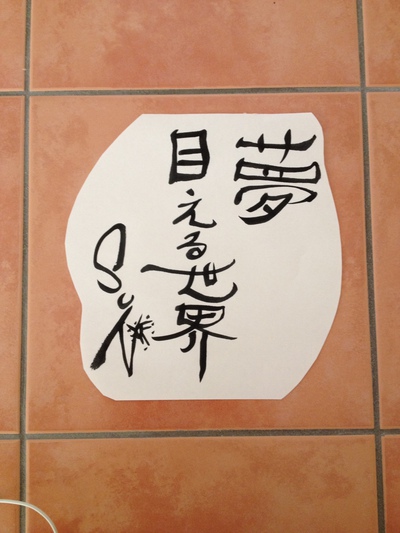 夢
目える世界